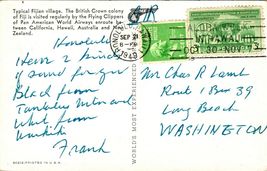 Typical Fijian village. The British Crown colony
of Fiji is visited regularly by the Flying Clippers
of Pan American World Airways enroute between
California, Hawaii, Australia and New
Zealand.
AIR
SEP 21
6 - PM
1949
OCT. 30 - NOV.
Honolulu
Have 2 kinds
of sand for you
Black from
and
White from
Waikiki
Frank
Mr Chas R Lamb
Route 1 Box 39
Long Beach
WASHINGTON
WORLD'S MOST EXPERIENCED